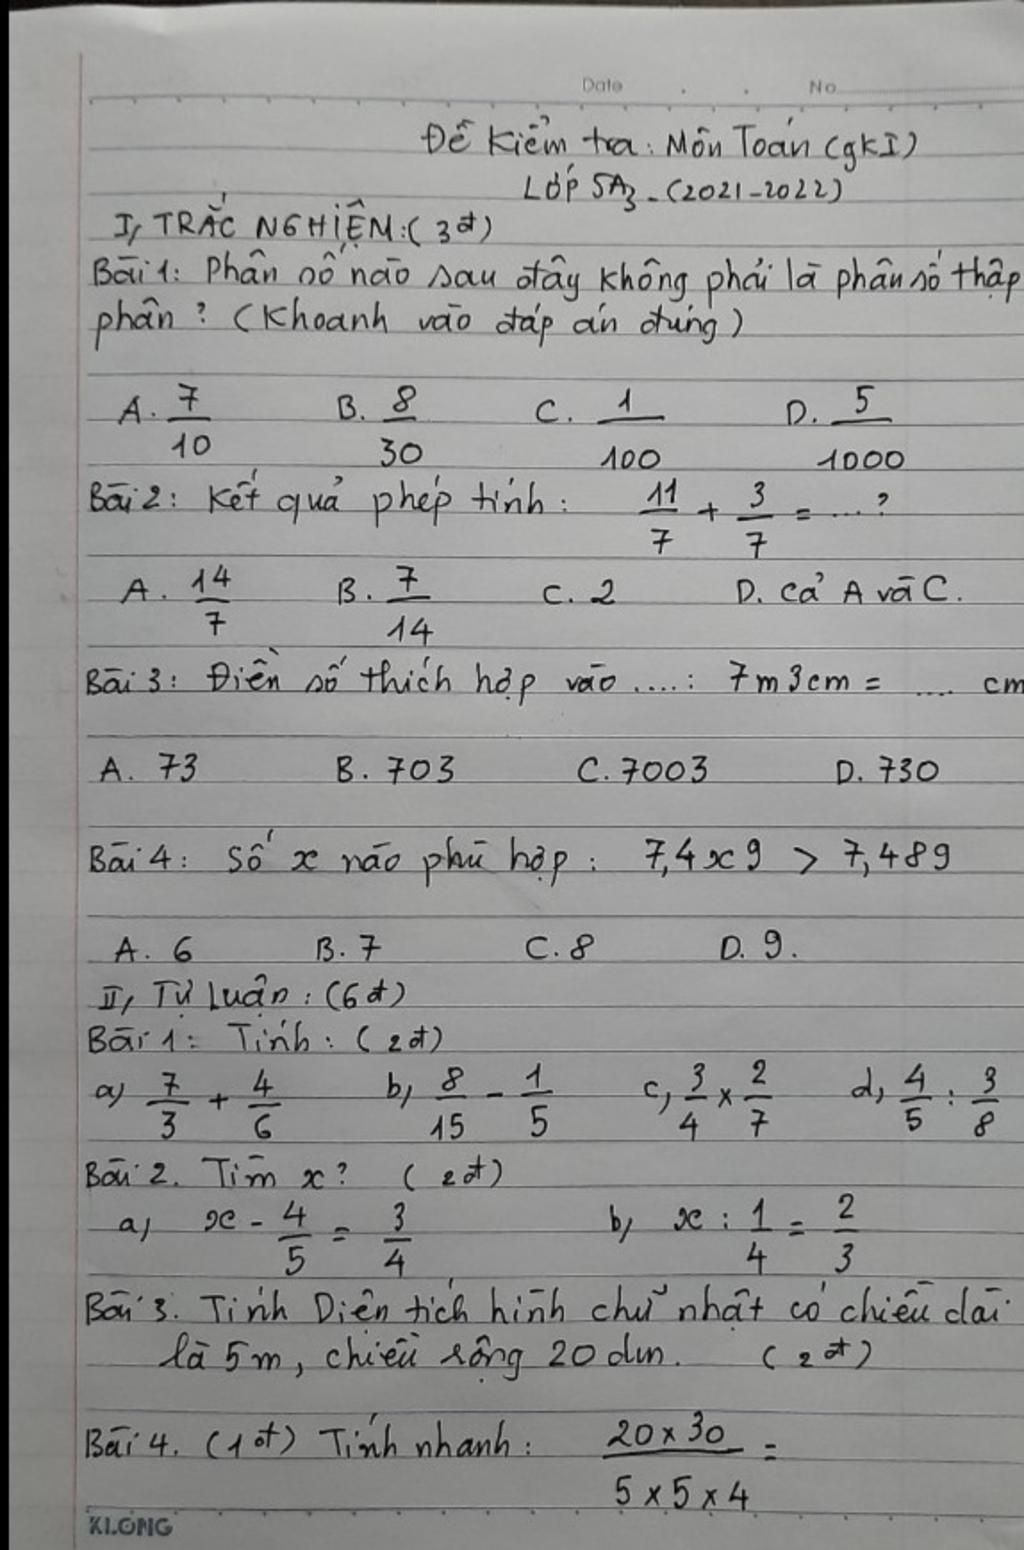 Date . . No
Đề Kiểm tra: Môn Toán (gkI)
Lớp 5A3 - (2021-2022)
I, TRẮC NGHIỆM: (3đ)
Bài 1: Phân số nào sau đây không phải là phân số thập
phân? (Khoanh vào đáp án đúng)
A. 7/10 B. 8/30 C. 1/100 D. 5/1000
Bài 2: Kết quả phép tính: 11/7 + 3/7 = ...?
A. 14/7 B. 7/14 C. 2 D. Cả A và C.
Bài 3: Điền số thích hợp vào ....: 7m3cm = .... cm
A. 73 B. 703 C. 7003 D. 730
Bài 4: Số x nào phù hợp: 7,4x9 > 7,489
A. 6 B. 7 C. 8 D. 9.
II, Tự Luận: (6đ)
Bài 1: Tính: (2đ)
a, 7/3 + 4/6 b, 8/15 - 1/5 c, 3/4 x 2/7 d, 4/5 : 3/8
Bài 2. Tìm x? (2đ)
a, x - 4/5 = 3/4 b, x : 1/4 = 2/3
Bài 3. Tính Diện tích hình chữ nhật có chiều dài
là 5m, chiều rộng 20dm. (2đ)
Bài 4. (1đ) Tính nhanh: 20 x 30 / 5 x 5 x 4 =
KLONG